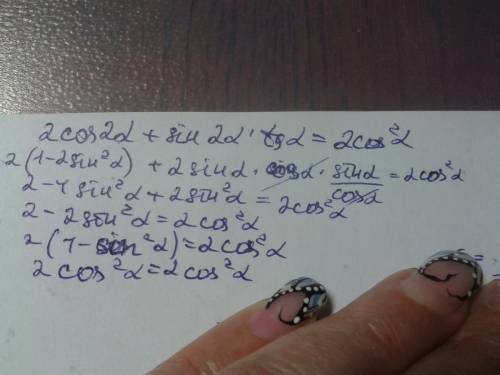 2cos2α + sin2α · tgα = 2cos²α
2(1-2sin²α) + 2sinα · cosα · sinα/cosα = 2cos²α
2-4sin²α + 2sin²α = 2cos²α
2-2sin²α = 2cos²α
2(1-sin²α) = 2cos²α
2cos²α = 2cos²α